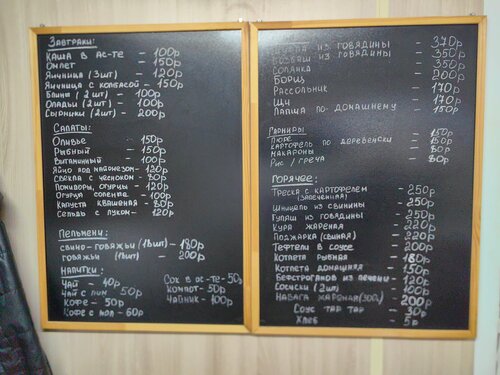 Завтраки:
Каша в ас-те - 100р
Омлет - 150р
Яичница (3шт) - 120р
Яичница с колбасой - 150р
Блины (2шт) - 100р
Оладьи (2шт) - 100р
Сырники (2шт) - 200р
Салаты:
Оливье - 150р
Рыбный - 150р
Витаминный - 100р
Яйцо под майонезом - 120р
Свекла с чесноком - 80р
Помидоры, огурцы - 120р
Огурцы соленые - 100р
Капуста квашеная - 80р
Сельдь с луком - 120р
Пельмени:
свино-говяжьи (18шт) - 180р
говяжьи (18шт) - 200р
Напитки:
Чай - 40р
Чай с лим - 50р
Кофе - 50р
Кофе с мол - 60р
Сок в ас-те - 50р
Компот - 50р
Чайник - 100р
из говядины - 370р
из говядины - 350р
Солянка - 350р
Борщ - 200р
Рассольник - 170р
Щи - 170р
Лапша по-домашнему - 150р
Гарниры:
Пюре - 150р
Картофель по деревенски - 150р
Макароны - 80р
Рис / греча - 80р
Горячее:
Треска с картофелем - 250р
(запеченная)
Шницель из свинины - 250р
Гуляш из говядины - 250р
Кура жареная - 220р
Поджарка (свиная) - 220р
Тефтели в соусе - 200р
Котлета рыбная - 180р
Котлета домашняя - 150р
Бефстроганов из печени - 120р
Сосиски (2шт) - 100р
Навага жареная - 200р
Соус тар тар - 30р
Хлеб - 5р